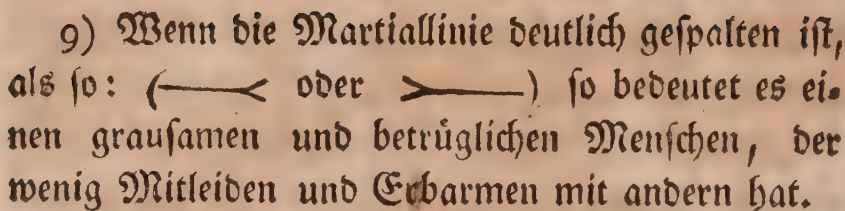 9) Wenn die Martiallinie deutlich geſpalten iſt,
als ſo: (——< oder >——) ſo bedeutet es ei-
nen grauſamen und betruͤglichen Menſchen, der
wenig Mitleiden und Erbarmen mit andern hat.